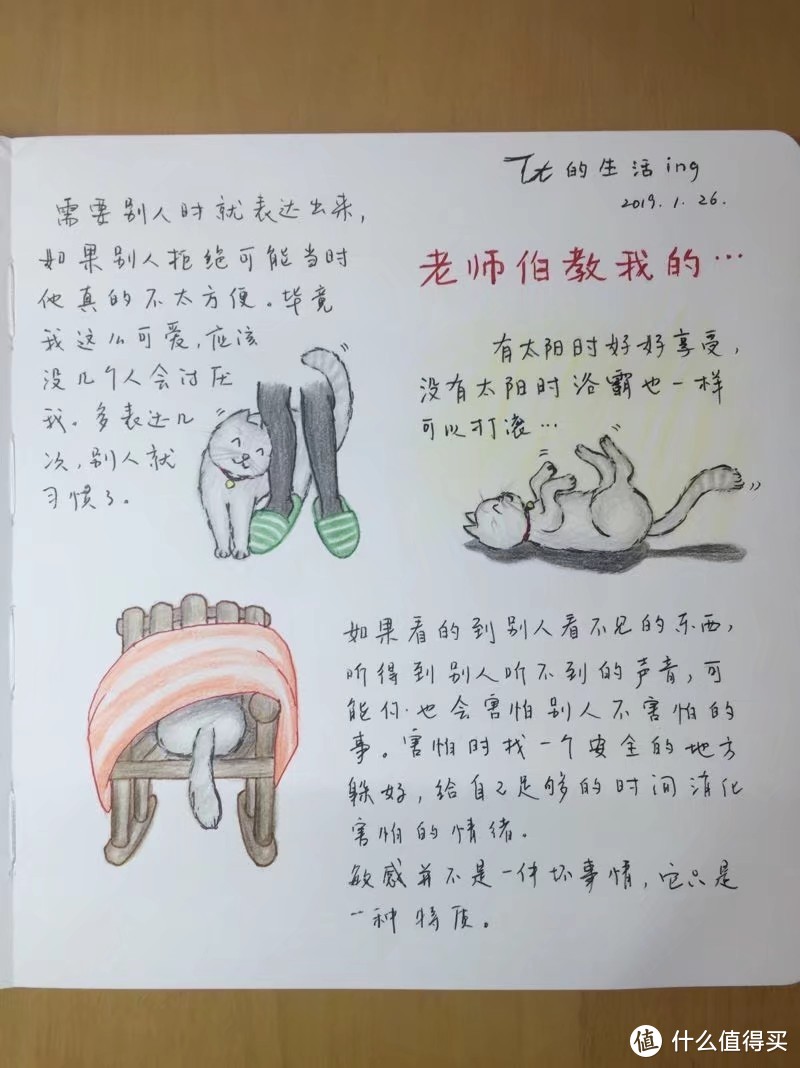 Tt的生活ing
2019.1.26.
老师伯教我的…
需要别人时就表达出来,
如果别人拒绝可能当时
他真的不太方便。毕竟
我这么可爱,应该
没几个人会讨厌
我。多表达几
次,别人就
习惯了。
有太阳时好好享受,
没有太阳时浴霸也一样
可以打滚…
如果看的到别人看不见的东西,
听得到别人听不到的声音,可
能你也会害怕别人不害怕的
事。害怕时找一个安全的地方
躲好,给自己足够的时间消化
害怕的情绪。
敏感并不是一件坏事情,它只是
一种特质。
值 什么值得买